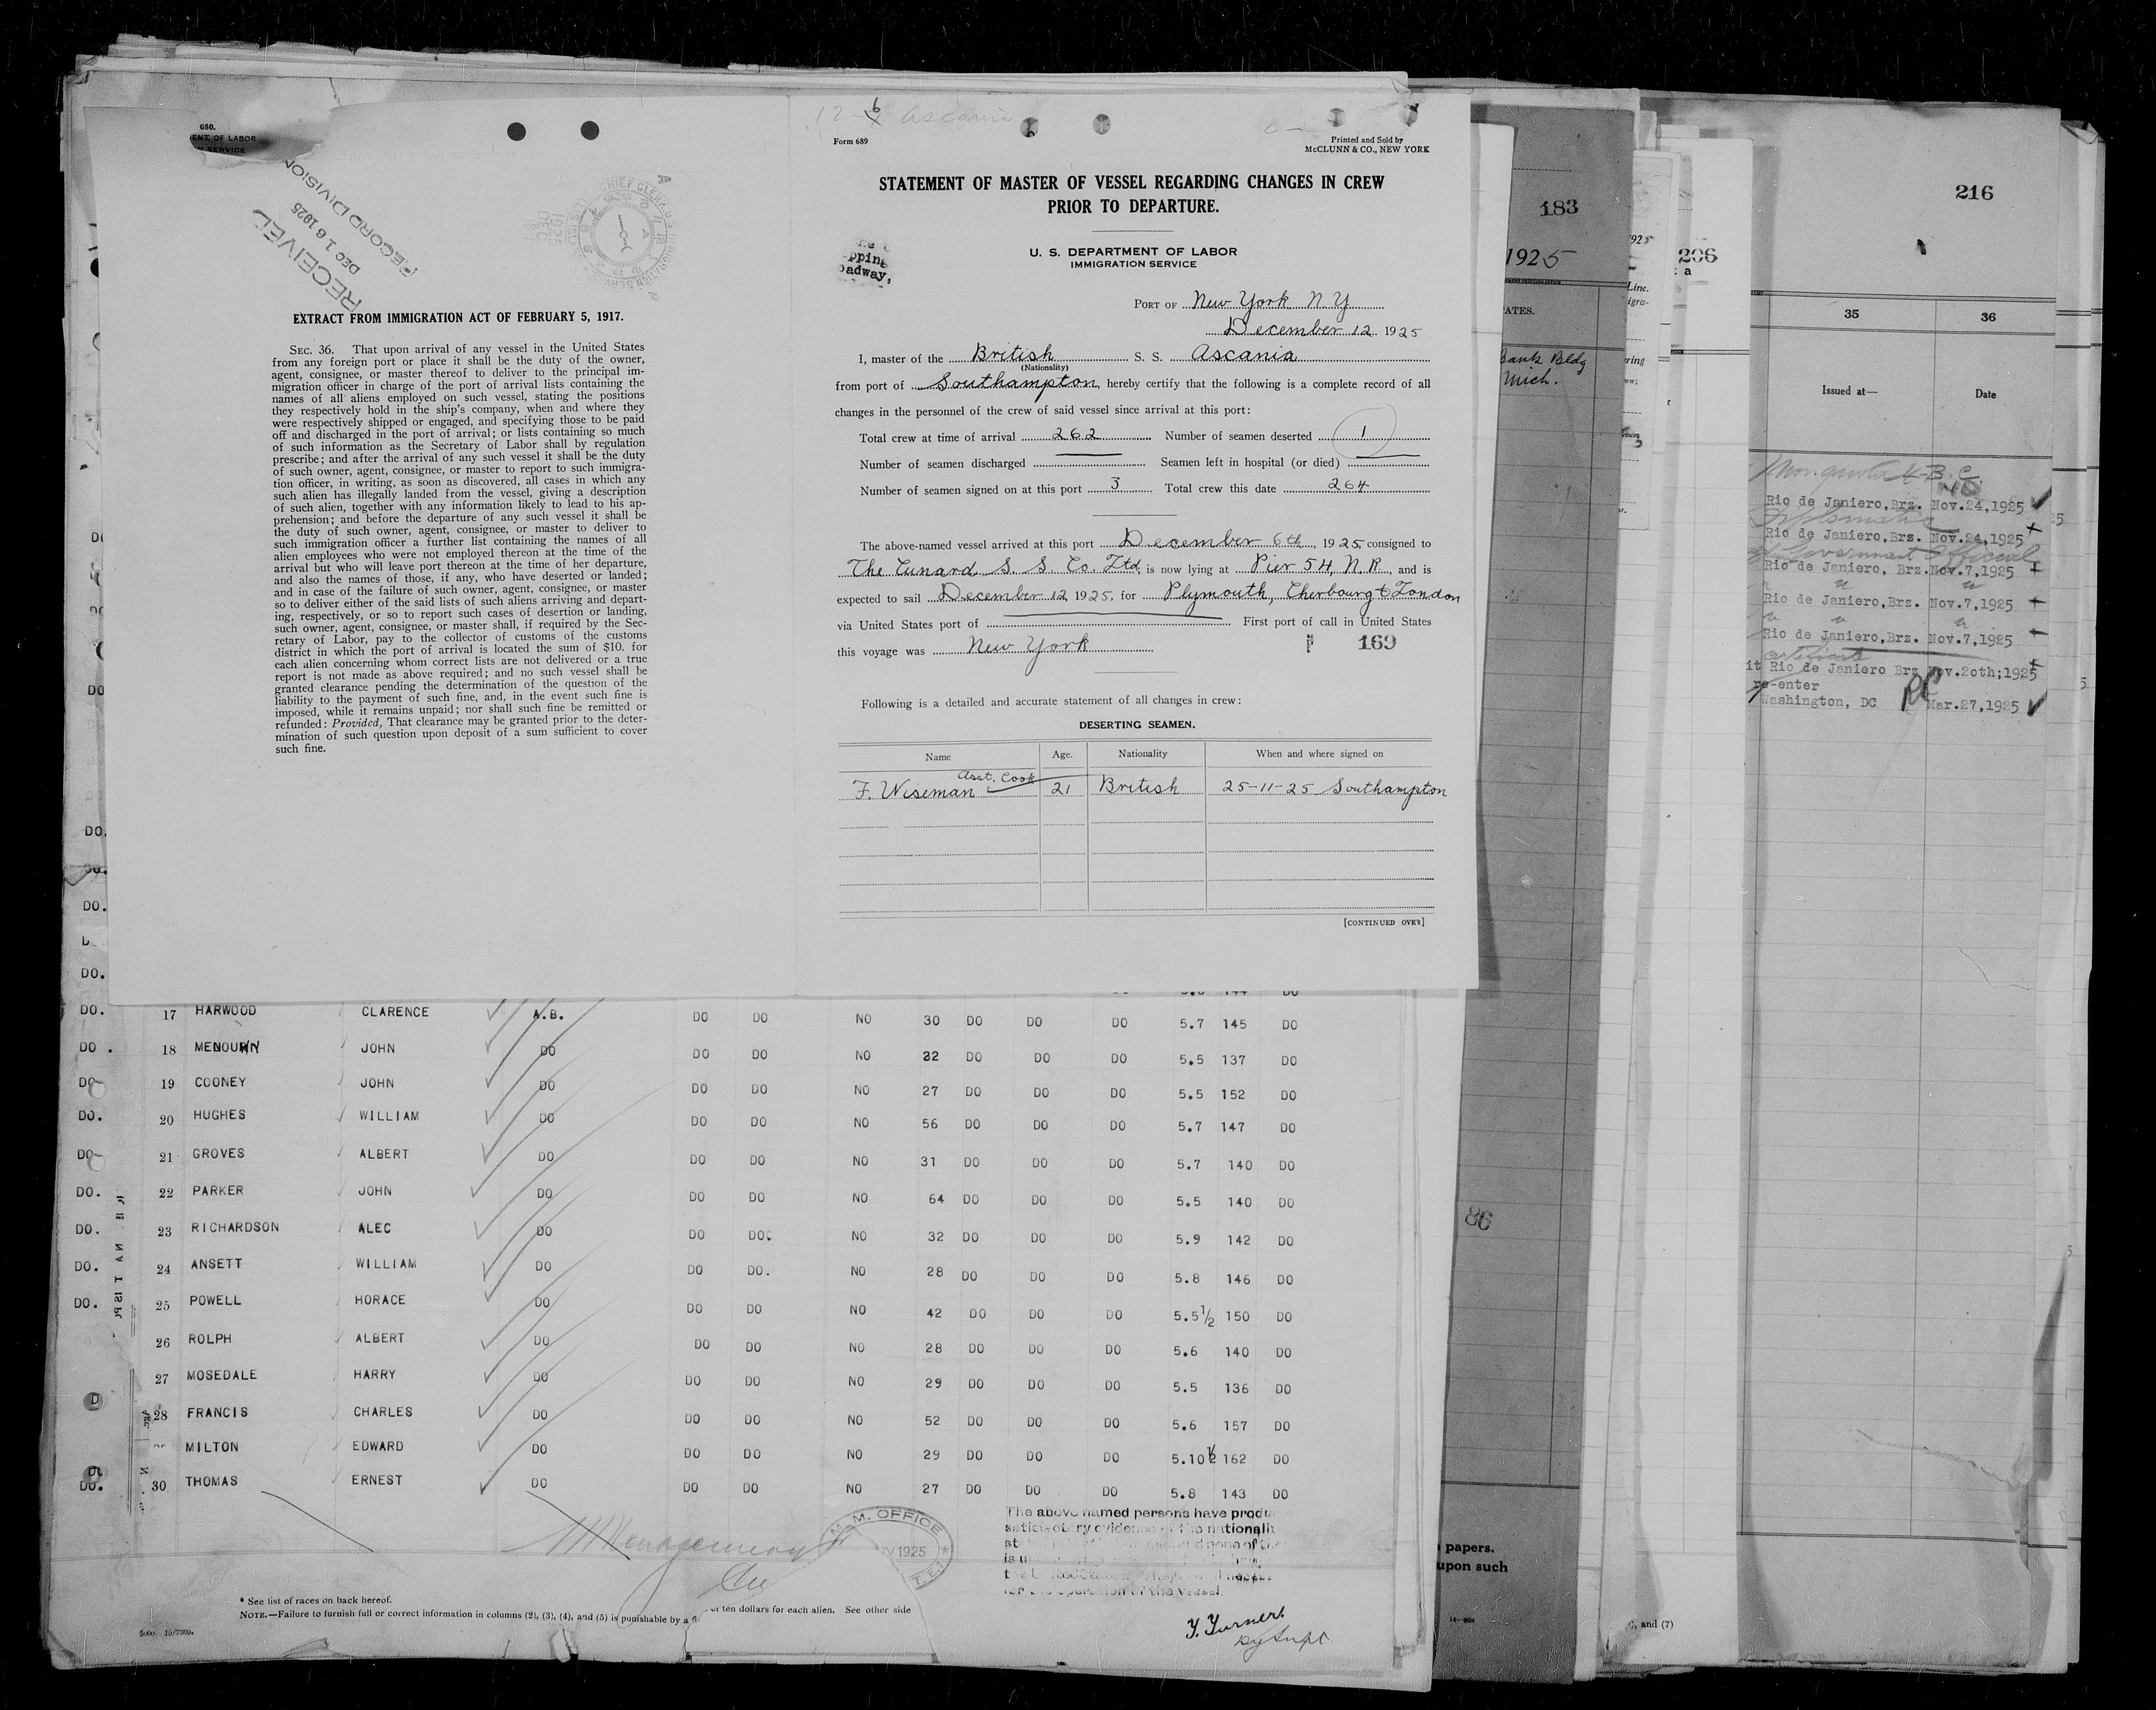 680.
ENT. OF LABOR
N SERVICE
RECEIVED
DEC 16 1925
RECORD DIVISION
EXTRACT FROM IMMIGRATION ACT OF FEBRUARY 5, 1917.
SEC. 36. That upon arrival of any vessel in the United States
from any foreign port or place it shall be the duty of the owner,
agent, consignee, or master thereof to deliver to the principal im-
migration officer in charge of the port of arrival lists containing the
names of all aliens employed on such vessel, stating the positions
they respectively hold in the ship's company, when and where they
were respectively shipped or engaged, and specifying those to be paid
off and discharged in the port of arrival; or lists containing so much
of such information as the Secretary of Labor shall by regulation
prescribe; and after the arrival of any such vessel it shall be the duty
of such owner, agent, consignee, or master to report to such immigra-
tion officer, in writing, as soon as discovered, all cases in which any
such alien has illegally landed from the vessel, giving a description
of such alien, together with any information likely to lead to his ap-
prehension; and before the departure of any such vessel it shall be
the duty of such owner, agent, consignee, or master to deliver to
such immigration officer a further list containing the names of all
alien employees who were not employed thereon at the time of the
arrival but who will leave port thereon at the time of her departure,
and also the names of those, if any, who have deserted or landed;
and in case of the failure of such owner, agent, consignee, or master
so to deliver either of the said lists of such aliens arriving and depart-
ing, respectively, or so to report such cases of desertion or landing,
such owner, agent, consignee, or master shall, if required by the Sec-
retary of Labor, pay to the collector of customs of the customs
district in which the port of arrival is located the sum of $10. for
each alien concerning whom correct lists are not delivered or a true
report is not made as above required; and no such vessel shall be
granted clearance pending the determination of the question of the
liability to the payment of such fine, and, in the event such fine is
imposed, while it remains unpaid; nor shall such fine be remitted or
refunded: Provided, That clearance may be granted prior to the deter-
mination of such question upon deposit of a sum sufficient to cover
such fine.
12-6 Ascania
Form 689
Printed and Sold by
McCLUNN & CO., NEW YORK
STATEMENT OF MASTER OF VESSEL REGARDING CHANGES IN CREW
PRIOR TO DEPARTURE.
U. S. DEPARTMENT OF LABOR
IMMIGRATION SERVICE
pping
oadway,
PORT OF New York N Y
December 12 1925
I, master of the British S. S. Ascania
(Nationality)
from port of Southampton, hereby certify that the following is a complete record of all
changes in the personnel of the crew of said vessel since arrival at this port:
Total crew at time of arrival 262 Number of seamen deserted 1
Number of seamen discharged Seamen left in hospital (or died)
Number of seamen signed on at this port 3 Total crew this date 264
The above-named vessel arrived at this port December 6th, 1925 consigned to
The Cunard S. S. Co. Ltd, is now lying at Pier 54, N. R., and is
expected to sail December 12 1925, for Plymouth, Cherbourg & London
via United States port of First port of call in United States
this voyage was New York 169
Following is a detailed and accurate statement of all changes in crew:
DESERTING SEAMEN.
Name Age. Nationality When and where signed on
F. Wiseman Asst. Cook 21 British 25-11-25 Southampton
[CONTINUED OVER]
DO. 17 HARWOOD CLARENCE A.B. DO DO NO 30 DO DO DO 5.7 145 DO
DO. 18 JOHN DO DO DO NO 32 DO DO DO 5.5 137 DO
DO 19 COONEY JOHN DO DO DO NO 27 DO DO DO 5.5 152 DO
DO. 20 HUGHES WILLIAM DO DO DO NO 56 DO DO DO 5.7 147 DO
DO 21 GROVES ALBERT DO DO DO NO 31 DO DO DO 5.7 140 DO
DO. 22 PARKER JOHN DO DO DO NO 64 DO DO DO 5.5 140 DO
DO. 23 RICHARDSON ALEC DO DO DO. NO 32 DO DO DO 5.9 142 DO
DO. 24 ANSETT WILLIAM DO DO DO. NO 28 DO DO DO 5.8 146 DO
DO. 25 POWELL HORACE DO DO DO NO 42 DO DO DO 5.5½ 150 DO
26 ROLPH ALBERT DO DO DO NO 28 DO DO DO 5.6 140 DO
27 MOSEDALE HARRY DO DO DO NO 29 DO DO DO 5.5 136 DO
28 FRANCIS CHARLES DO DO DO NO 52 DO DO DO 5.6 157 DO
MILTON EDWARD DO DO DO NO 29 DO DO DO 5.10½ 162 DO
DO. 30 THOMAS ERNEST DO DO DO NO 27 DO DO DO 5.8 143 DO
M. M. OFFICE
1925
The above named persons have produ
satisfactory evidence of the nationali
for the operation of the vessel.
Y. Turner
Dy Supt
* See list of races on back hereof.
NOTE.—Failure to furnish full or correct information in columns (2), (3), (4), and (5) is punishable by a
of ten dollars for each alien. See other side
183
1925
ATES.
Bank Bldg
Mich.
86
papers.
upon such
206
a
Line.
igra-
, and (7)
216
35 36
Issued at— Date
Rio de Janiero,Brz. Nov.24,1925
Diplomatic
Rio de Janiero,Brz. Nov.24,1925
Government Official
Rio de Janiero, Brz. Nov.7,1925
Rio de Janiero,Brz. Nov.7,1925
Rio de Janiero,Brz. Nov.7,1925
certificate
it Rio de Janiero Brz Nov.20th;1925
re-enter
Washington, DC Mar.27,1925